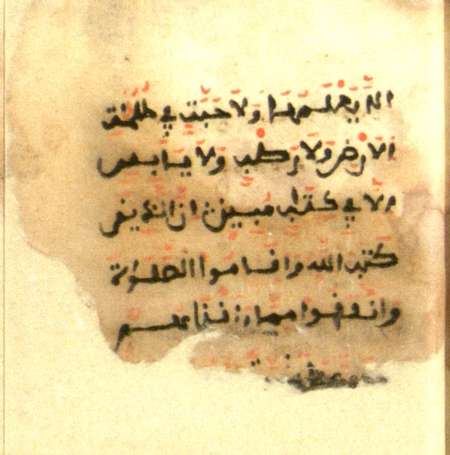 الا يعلمها ولا حبة في ظلمت
الارض ولا رطب ولا يابس
الا في كتب مبين ان الذين
كتب الله واقاموا الصلوة
وانفقوا مما رزقنهم